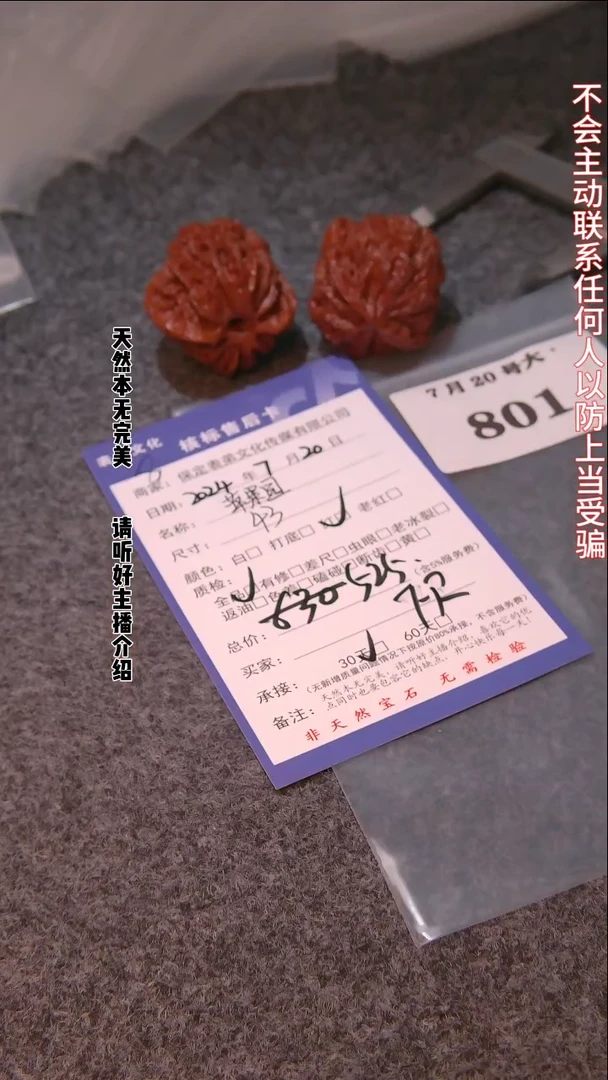 不会主动联系任何人以防上当受骗
天然本无完美 请听好主播介绍
7月20号大
801
文化 核标售后卡
商家：保定袁弟文化传媒有限公司
日期：2024年7月20日
名称：苹果园
尺寸：43
颜色：白□ 打底□ 老红□
质检：全品 有修□差尺□虫眼□老冰裂□
返油□色□磕碰□断齿□黄□
总价：630-525. (含5%服务费)
买家：
承接：30天□ 60天□
(无新增质量问题情况下按原价80%承接，不含服务费)
备注：天然本无完美，请听好主播介绍，喜欢它的优
点同时也要包容它的缺点，开心快乐每一天！
非天然宝石 无需检验